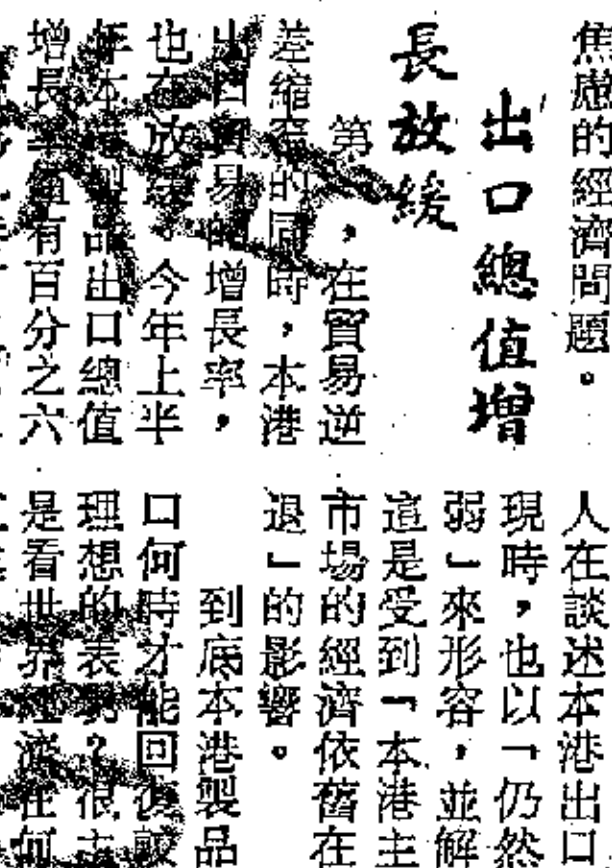 焦慮的經濟問題。
出口總值增
長放緩
第，在貿易逆
差縮窄的同時，本港
出口貿易的增長率，
也在放緩。今年上半
年本港製品出口總值
增長率值有百分之六
人在談述本港出口
現時，也以「仍然
弱」來形容，並解
這是受到「本港主
市場的經濟依舊在
退」的影響。
到底本港製品
口何時才能回復較
理想的表現？很
是看世界經濟在何